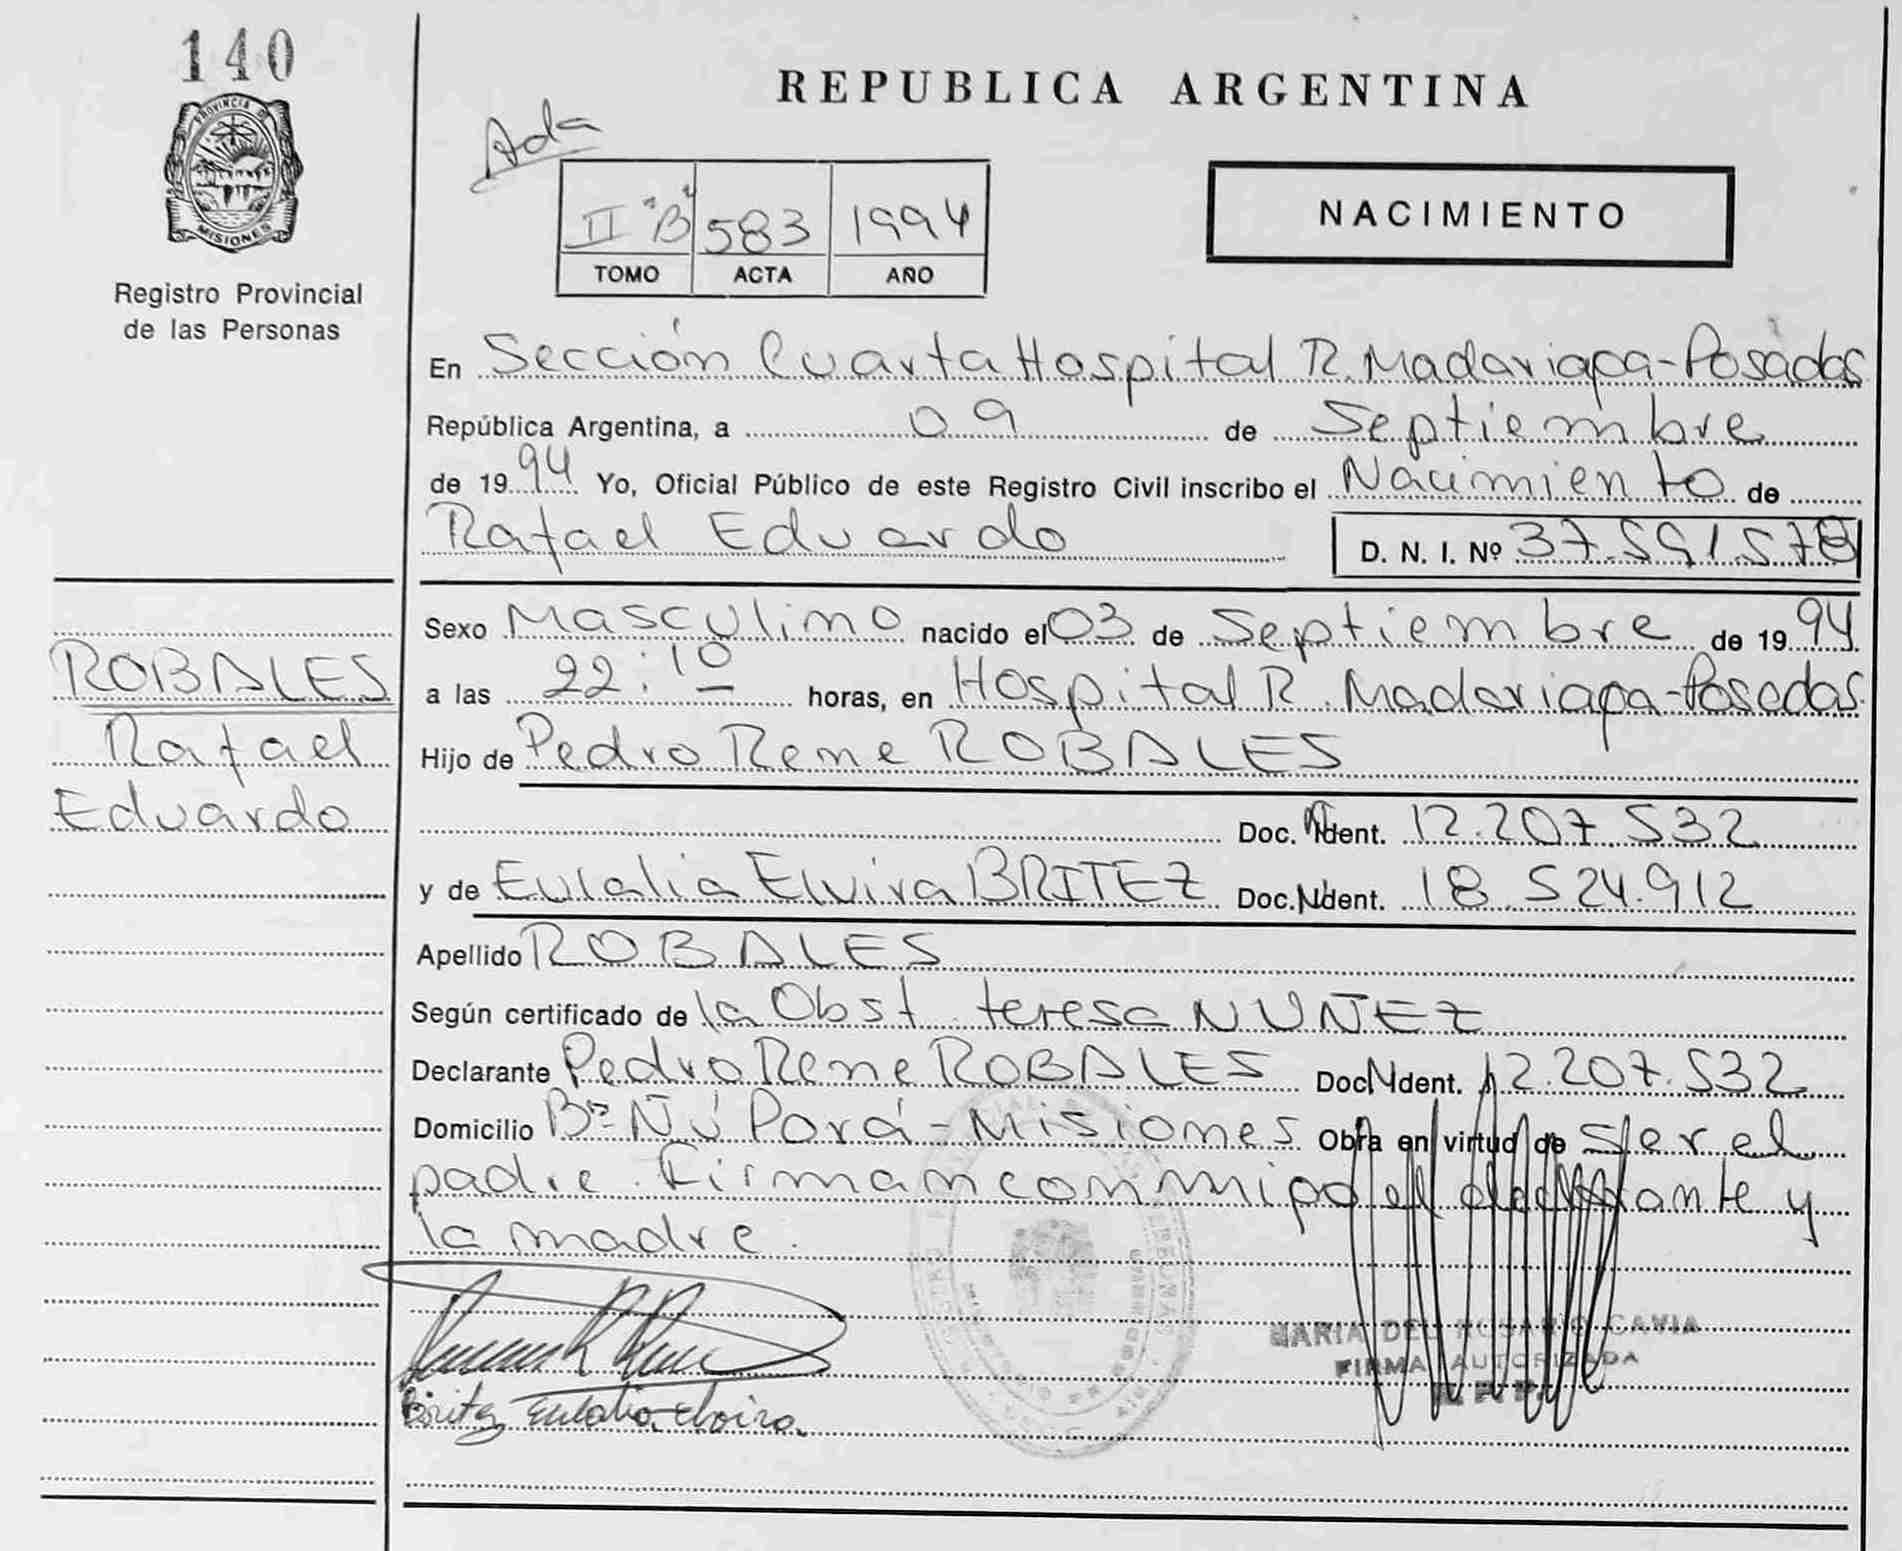 140
PROVINCIA DE
MISIONES
Registro Provincial
de las Personas
ROBALES
Rafael
Eduardo
REPUBLICA ARGENTINA
Ada
II "B" 583 1994
TOMO ACTA AÑO
NACIMIENTO
En Sección Cuarta Hospital R. Madariaga-Posadas
República Argentina, a 09 de Septiembre
de 1994 Yo, Oficial Público de este Registro Civil inscribo el Nacimiento de
Rafael Eduardo D. N. I. Nº 37.591.578
Sexo Masculino nacido el 03 de Septiembre de 1994
a las 22:10 horas, en Hospital R. Madariaga-Posadas
Hijo de Pedro Rene ROBALES
Doc. Ident. 12.207.532
y de Eulalia Elvira BRITEZ Doc. Ident. 18.524.912
Apellido ROBALES
Según certificado de la Obst. teresa NUÑEZ
Declarante Pedro Rene ROBALES Doc. Ident. 12.207.532
Domicilio Bº Ñú Porá - Misiones Obra en virtud de Ser el
padre. Firman conmigo el declarante y
la madre.
MARIA DEL ROSARIO CAVIA
FIRMA AUTORIZADA
Britez Eulalia Elvira.